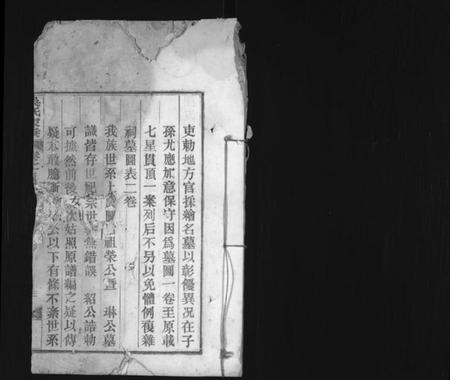 吏勅地方官採繪名墓以彰優異况在子
孫尤應加意保守因爲墓圖一卷至原載
七星貫頂一案列后不另以免體例複雜
祠墓圖表二卷
我族世系上 祖榮公曁 琳公墓
識皆存世 宗世 無錯誤 紹公誥勅
可據然前後 次姑照原譜編之疑以傳
疑不敢臆斷 公以下有條不紊世系